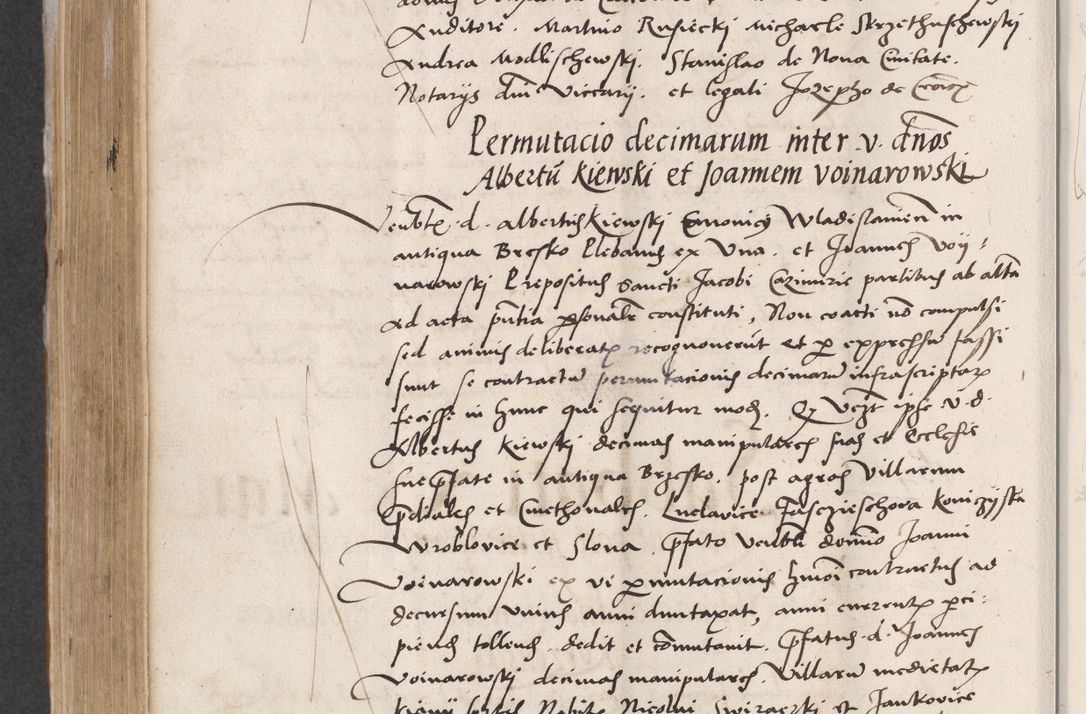 Auditore. Martino Rusiecki Michaele Skrzethuschewskj
Andrea Modlischewskj. Stanislao de Nova Civitate.
Notarijs dni Viccarij. et legali Jozepho de
Permutacio decimarum inter v. dnos
Albertū Kiewski et Joannem Voinarowski
Venbłes d. Albertus Kiewskj Canonicus Wladislavien in
antiqua Bresko Plebanus ex Una. et Joannes Voy-
narowskj Prepositus Sancti Jacobi Cazimirie partibus ab altā
ad acta pntia psonalr constituti, Non coacti nō compulsi
sed animis deliberatis recognoverūt et per expressū fassi
sunt se contractū permutacionis decimarū infrascriptarum
fecisse in hunc qui sequitur modū. Qz ipse v. d.
Albertus Kiewskj decimas manipulares suas et Ecclesie
sue pfate in antiqua Brzesko, post agros Villarum
pdiales et Cmethonales. Lnclavice Jasczieschora Koniczyska
Wroblovice et Slona pfato Venbli domino Joanni
Voinarowski ex vi permutacionis hmoi contractus ad
decursum unius anni duntaxat, anni currentis perci-
piendas tollendas. dedit et comutavit. pfatus d. Joannes
Voinarowskj decimas manipulares. Villarū medietatis
Nicolai Swiraczki et Jankovice